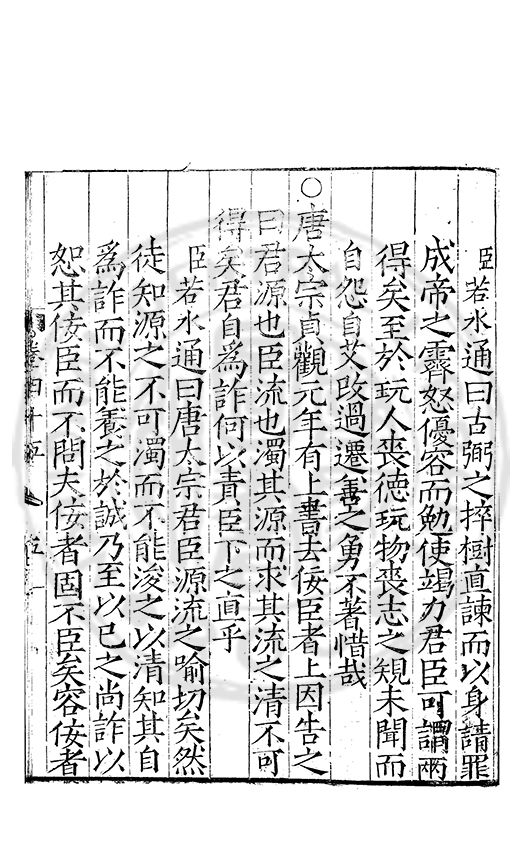 臣若水通曰古弼之捽樹直諫而以身請罪
成帝之霽怒優容而勉使竭力君臣可謂兩
得矣至於玩人喪德玩物喪志之規未聞而
自怨自艾改過遷善之勇不著惜哉
○唐太宗貞觀元年有上書去佞臣者上因告之
曰君源也臣流也濁其源而求其流之清不可
得矣君自爲詐何以責臣下之直乎
臣若水通曰唐太宗君臣源流之喻切矣然
徒知源之不可濁而不能浚之以清知其自
爲詐而不能養之於誠乃至以己之尚詐以
恕其佞臣而不問夫佞者固不臣矣容佞者
卷四十五 五